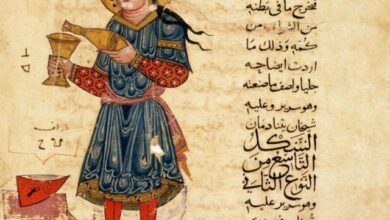 مخرج ما في بطنه
من الشراب من
كمه وذلك ما
اردت ايضاحه
جليا واصف ما صنعته
وهو سرير وعليه
شيخان يتنادمان
الشكل
التاسع من
النوع الثاني
وهو سرير وعليه